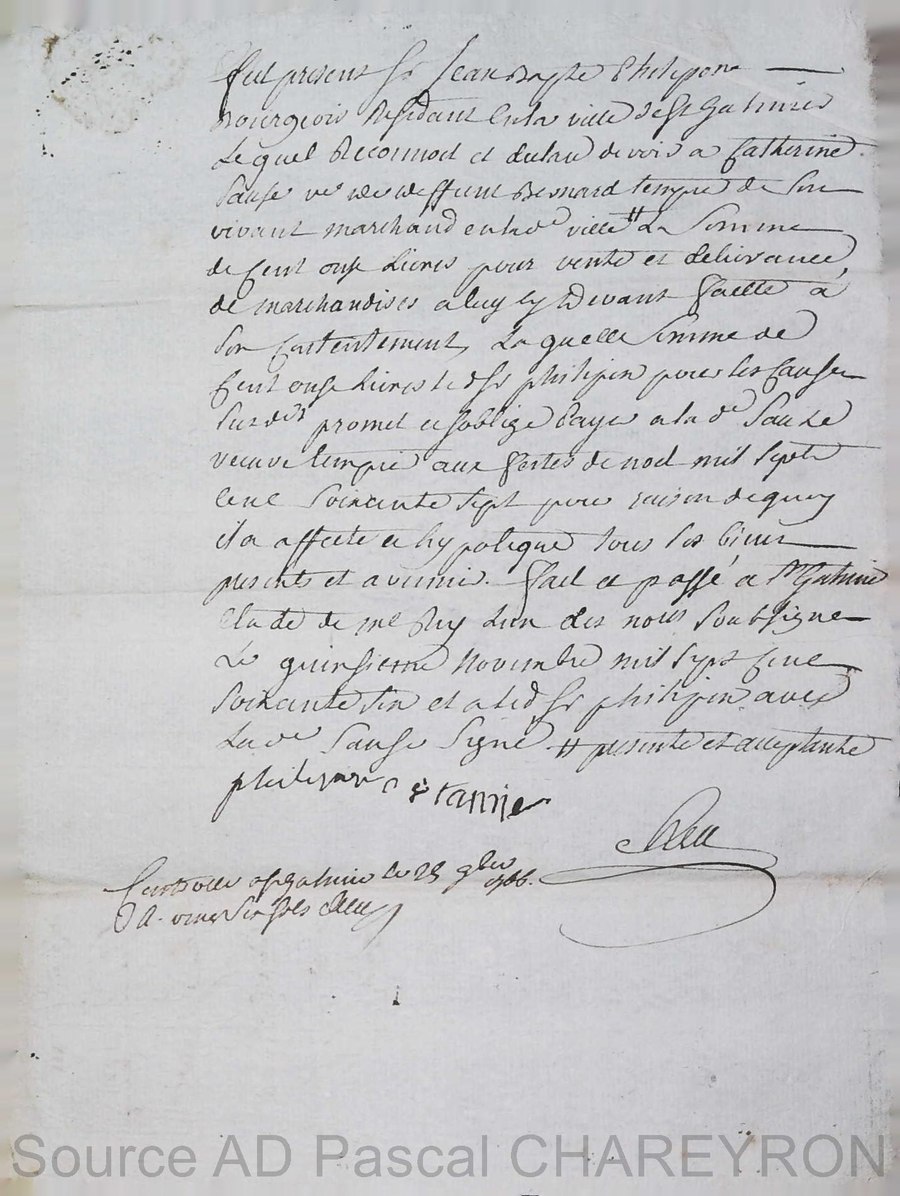 fut present Sr Jean Bapte Philipon
Bourgeois Residant en la ville de St Galmier
Lequel Reconnoit et devoir a Catherine
Sauze ve de deffunt Bernard tempié de son
vivant marchand en lad.e ville # La Somme
de Cent onze Livres pour vente et delivrance
de marchandises a luy cy devant faitte a
son Contentement, Laquelle somme de
Cent onze Livres led Sr philipon pour les Causes
susd.s promet et soblige Payer a la d.e Sauze
veuve tempié aux festes de noel mil sept
cent Soixante sept pour raison de quoy
il a affecté et hypotequé tous ses biens
presents et avenir. fait et passé a St Galmier
Etude de me Lun des nous Soubsigné
Le quinsieme Novembre mil sept Cent
Soixante six et a led Sr philipon avec
La d.e Sauze Signé # presente et acceptante
philipon
Controllé a St Galmier le 25 9bre 1766.
R. vingt six sols
Source AD Pascal CHAREYRON